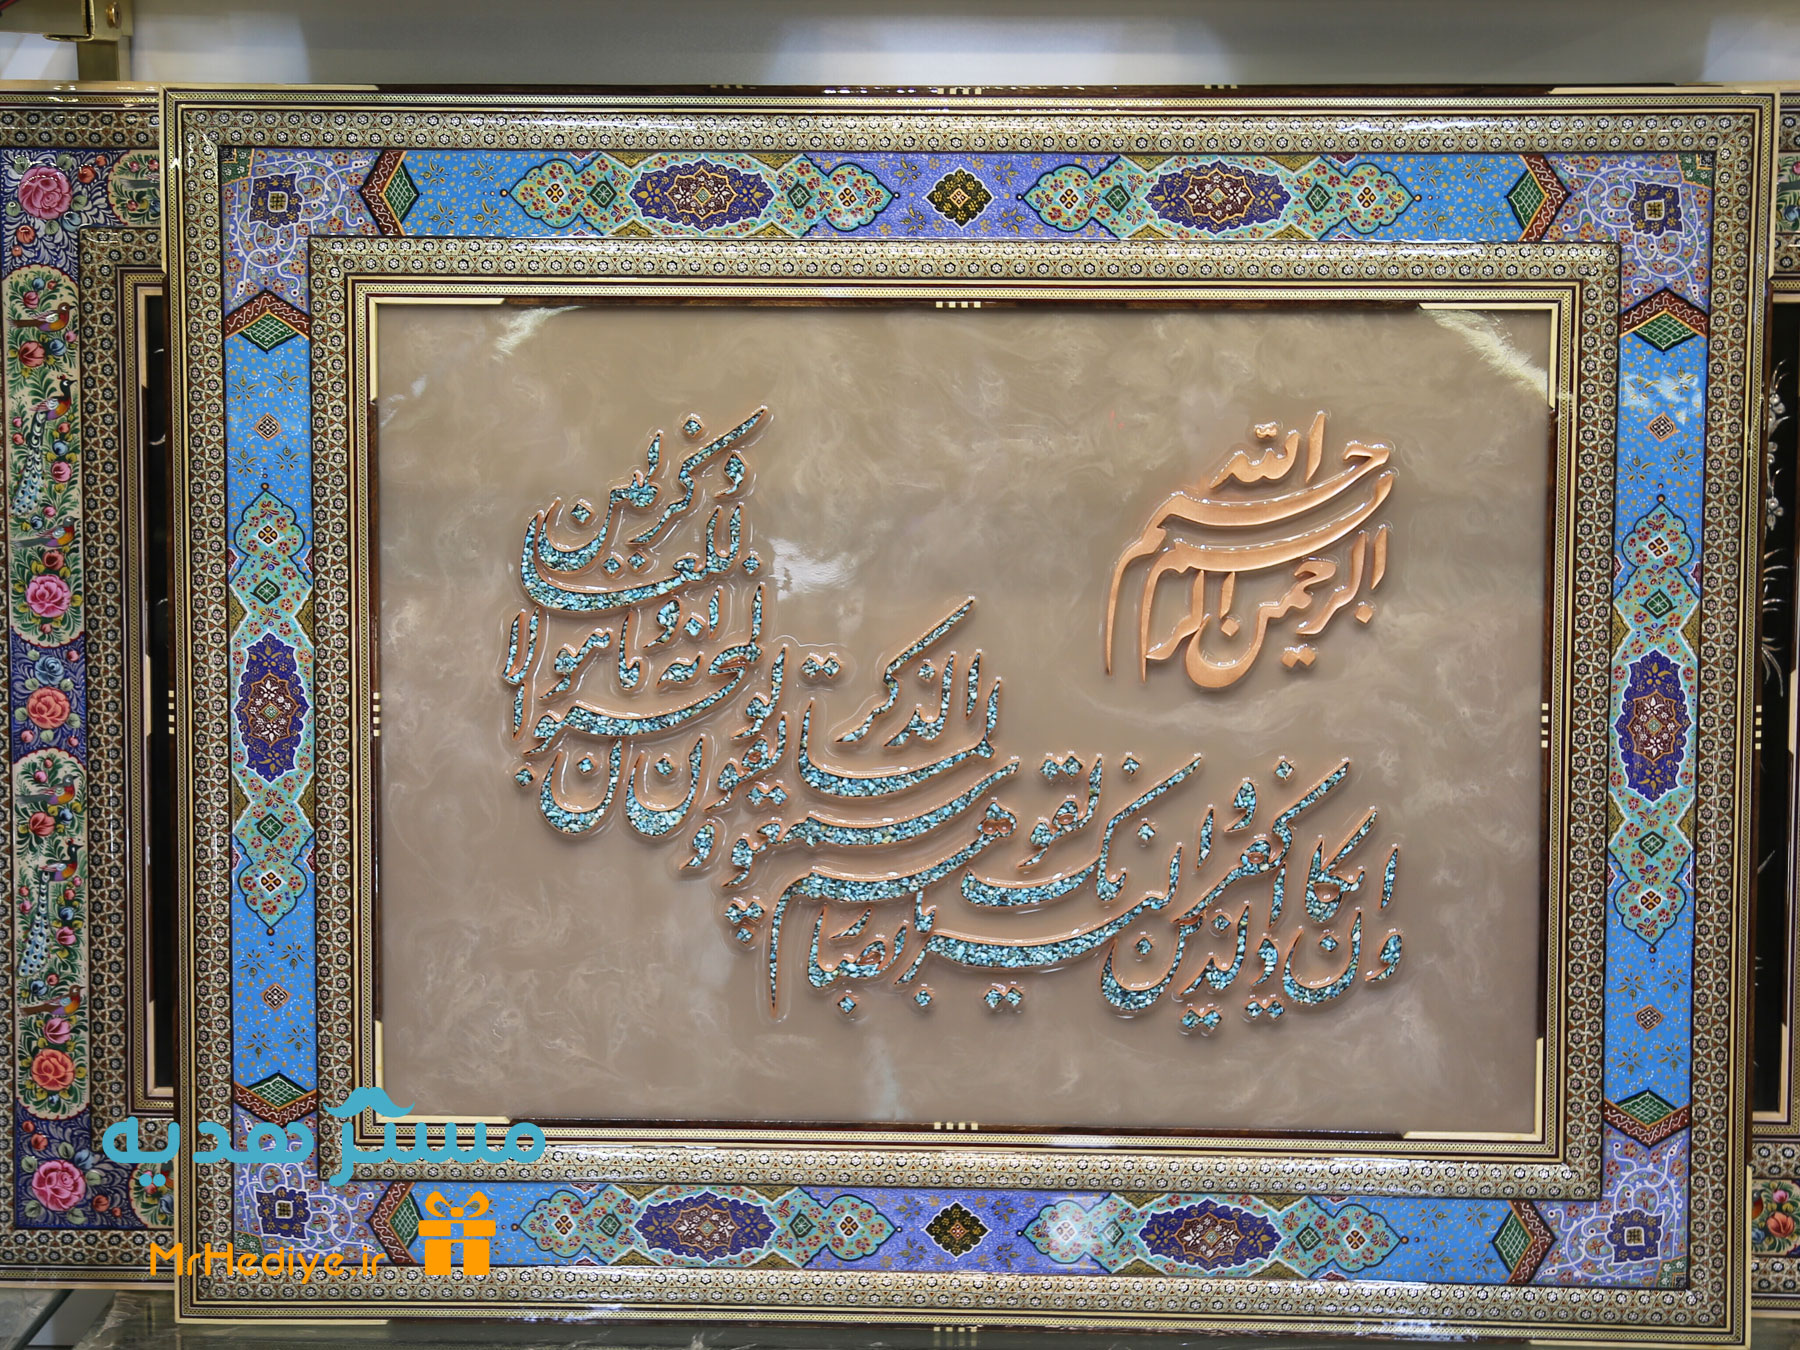 بسم الله
الرحمن الرحیم
وان یکاد الذین کفروا لیزلقونک
بابصارهم لما سمعوا الذکر
ویقولون انه لمجنون
وما هو الا ذکر للعالمین
مسترهدیه
MrHediye.ir